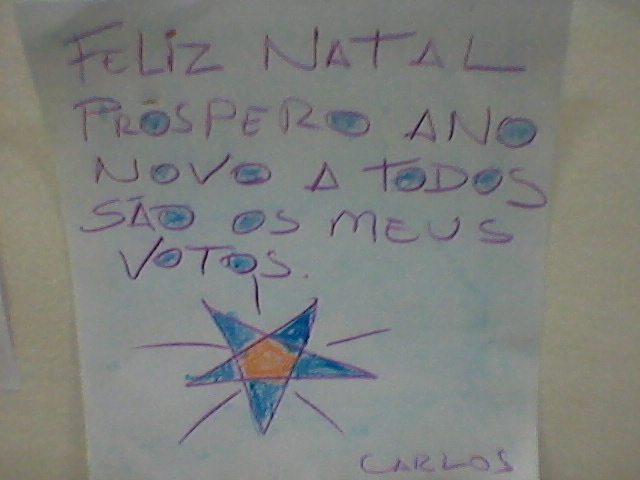 FELIZ NATAL
PRÓSPERO ANO
NOVO A TODOS
SÃO OS MEUS
VOTOS.
CARLOS